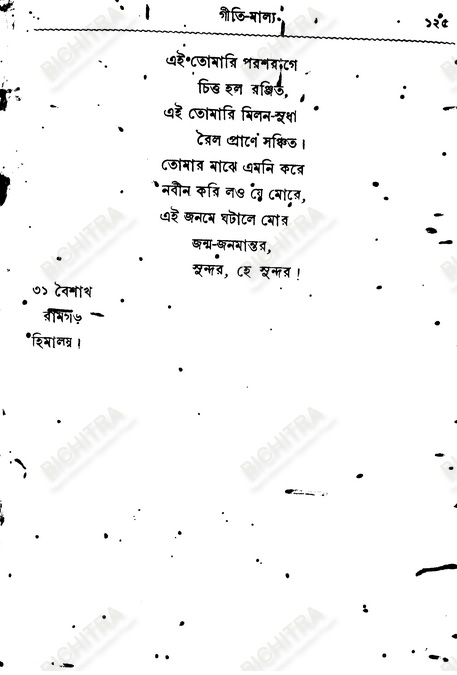 গীতি-মাল্য
১২৫
এই তোমারি পরশরাগে
চিত্ত হল রঞ্জিত,
এই তোমারি মিলন-সুধা
রৈল প্রাণে সঞ্চিত।
তোমার মাঝে এমনি করে
নবীন করি লও যে মোরে,
এই জনমে ঘটালে মোর
জন্ম-জনমান্তর,
সুন্দর, হে সুন্দর!
৩১ বৈশাখ
রামগড়
হিমালয়।
BICHITRA
BICHITRA
BICHITRA
BICHITRA
BICHITRA
BICHITRA
BICHITRA
BICHITRA
BICHITRA
BICHITRA
BICHITRA
BICHITRA